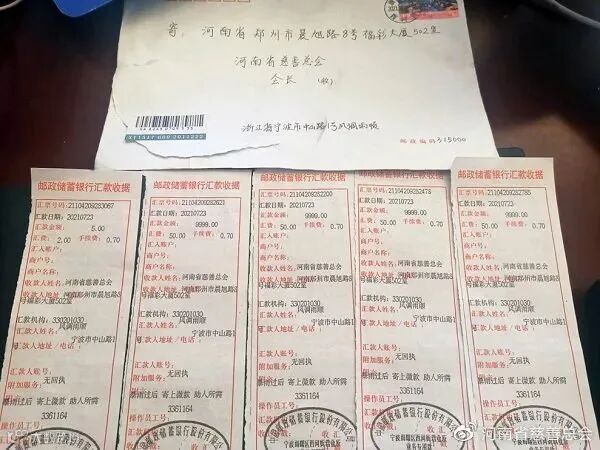 寄: 河南省郑州市晨旭路8号福彩大厦502室
河南省慈善总会
会长 (收)
浙江省宁波市中山路1号风调雨顺
邮政编码315000
邮政储蓄银行汇款收据
汇票号码:21104209283067
汇款日期:20210723
汇款金额: 5.00
汇费: 2.00 手续费: 0.70
汇入账户:
商户号:
商户名称:
收款人姓名:河南省慈善总会
收款人地址:河南郑州市晨旭路8
号福彩大厦502室
汇款机构: 330201030
汇款人姓名: 风调雨顺
汇款人地址/电话: 宁波市中山路1
号
汇款人账号:
附加服务: 无回执
暴雨过后 寄上微款 助人所需
操作员号: 3361164
邮政储蓄银行汇款收据
汇票号码:21104209282621
汇款日期:20210723
汇款金额: 9999.00
汇费: 50.00 手续费: 0.70
汇入账户:
商户号:
商户名称:
收款人姓名:河南省慈善总会
收款人地址:河南郑州市晨旭路8
号福彩大厦502室
汇款机构: 330201030
汇款人姓名: 风调雨顺
汇款人地址/电话: 宁波市中山路1
号
汇款人账号:
附加服务: 无回执
暴雨过后 寄上微款 助人所需
操作员号: 3361164
邮政储蓄银行汇款收据
汇票号码:21104209282200
汇款日期:20210723
汇款金额: 9999.00
汇费: 50.00 手续费: 0.70
汇入账户:
商户号:
商户名称:
收款人姓名:河南省慈善总会
收款人地址:河南郑州市晨旭路8
号福彩大厦502室
汇款机构: 330201030
汇款人姓名: 风调雨顺
汇款人地址/电话: 宁波市中山路1
号
汇款人账号:
附加服务: 无回执
暴雨过后 寄上微款 助人所需
操作员号: 3361164
邮政储蓄银行汇款收据
汇票号码:21104209282478
汇款日期:20210723
汇款金额: 9999.00
汇费: 50.00 手续费: 0.70
汇入账户:
商户号:
商户名称:
收款人姓名:河南省慈善总会
收款人地址:河南郑州市晨旭路8
号福彩大厦502室
汇款机构: 330201030
汇款人姓名: 风调雨顺
汇款人地址/电话: 宁波市中山路1
号
汇款人账号:
附加服务: 无回执
暴雨过后 寄上微款 助人所需
操作员号: 3361164
邮政储蓄银行汇款收据
汇票号码:21104209282785
汇款日期:20210723
汇款金额: 9999.00
汇费: 50.00 手续费: 0.70
汇入账户:
商户号:
商户名称:
收款人姓名:河南省慈善总会
收款人地址:河南郑州市晨旭路8
号福彩大厦502室
汇款机构: 330201030
汇款人姓名: 风调雨顺
汇款人地址/电话: 宁波市中山路1
号
汇款人账号:
附加服务: 无回执
暴雨过后 寄上微款 助人所需
操作员号: 3361164
@河南省慈善总会